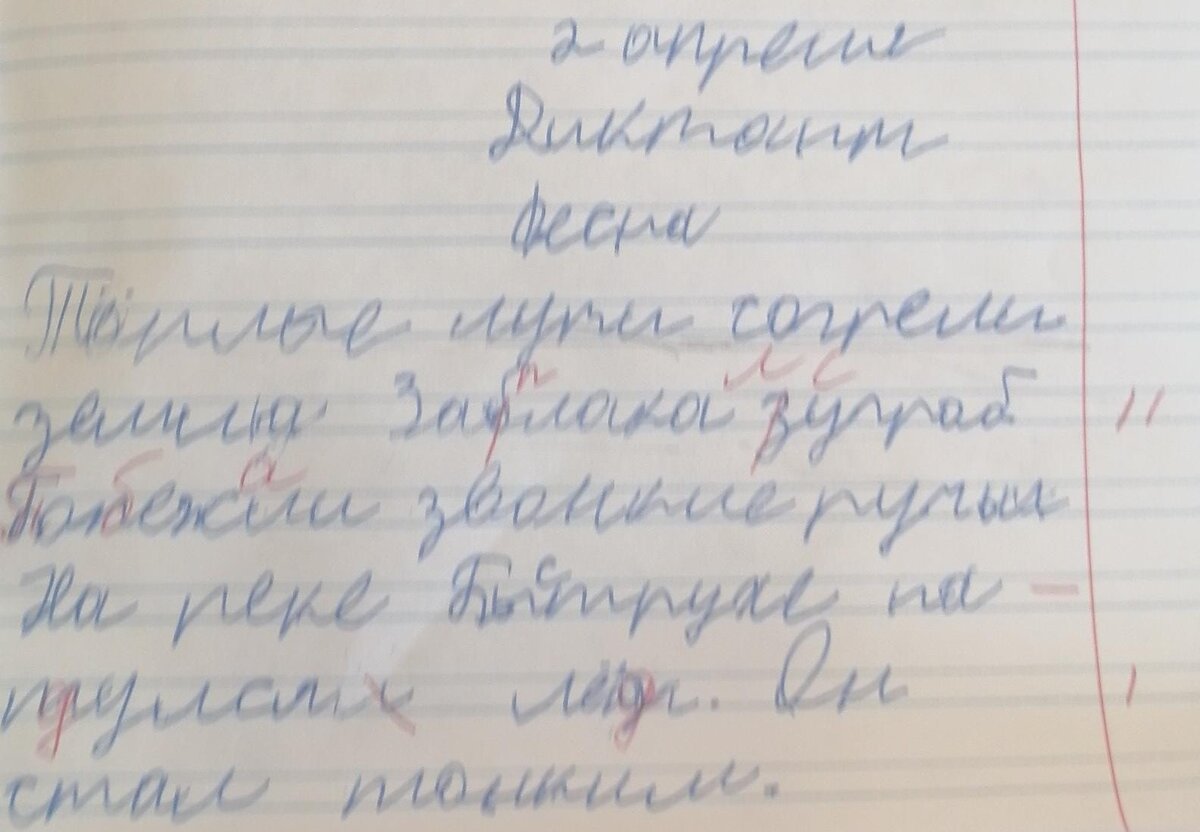 2 апреля
Диктант
Весна
Тёплые лучи согрели
землю. Заблака зугроб
Побежали звонкие ручьи
На реке Быструхе па -
тдулся лёд. Он
стал тонким.